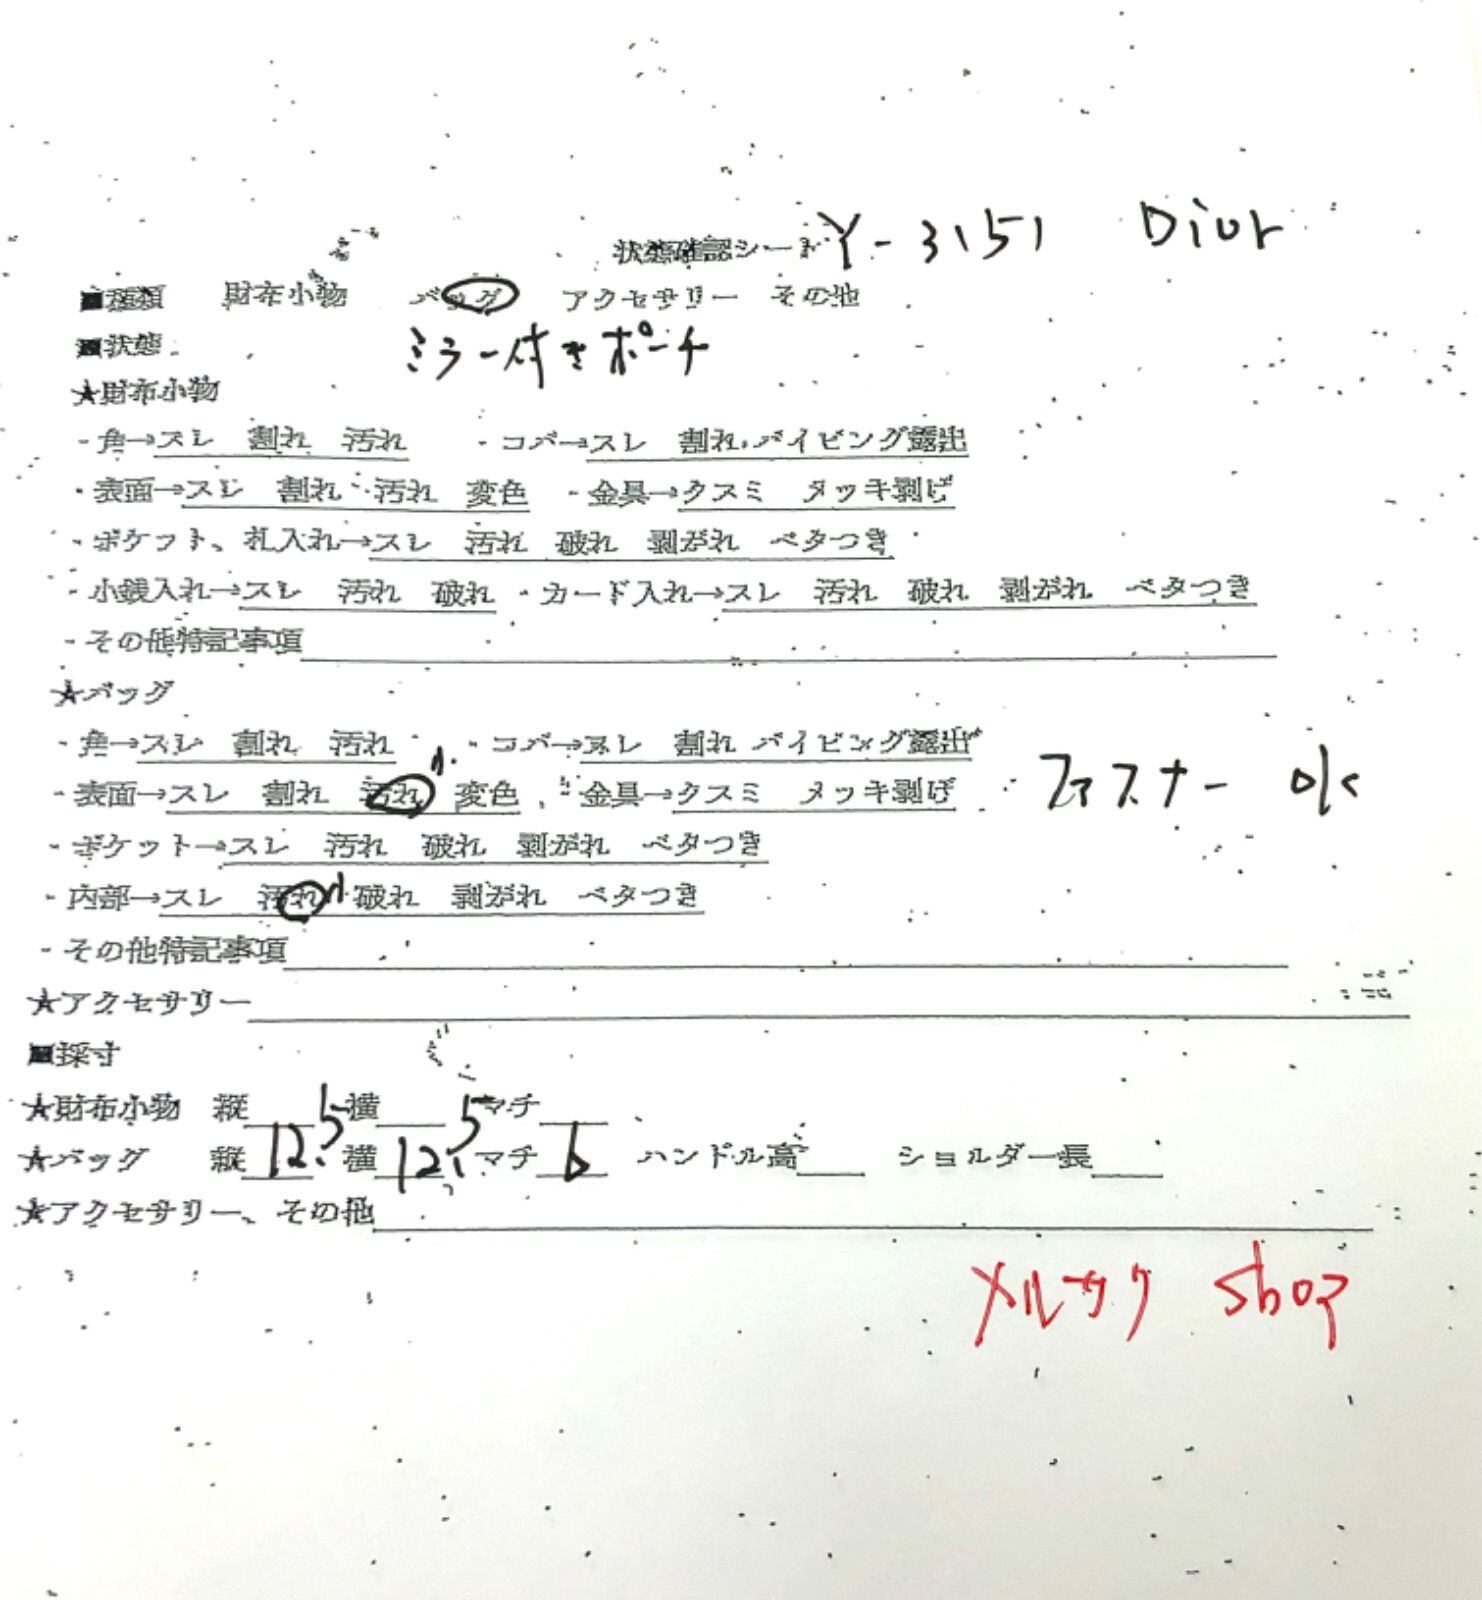 状態確認シート Y-3151 Dior
■種類 財布小物 バッグ アクセサリー その他
■状態 ミラー付きポーチ
★財布小物
・角→スレ 割れ 汚れ ・コバ→スレ 割れ パイピング露出
・表面→スレ 割れ 汚れ 変色 ・金具→クスミ メッキ剥げ
・ポケット、札入れ→スレ 汚れ 破れ 剥がれ ベタつき
・小銭入れ→スレ 汚れ 破れ ・カード入れ→スレ 汚れ 破れ 剥がれ ベタつき
・その他特記事項
★バッグ
・角→スレ 割れ 汚れ ・コバ→スレ 割れ パイピング露出
・表面→スレ 割れ 汚れ 小 変色 ・金具→クスミ メッキ剥げ ファスナー ok
・ポケット→スレ 汚れ 破れ 剥がれ ベタつき
・内部→スレ 汚れ 小 破れ 剥がれ ベタつき
・その他特記事項
★アクセサリー
■採寸
★財布小物 縦 横 マチ
★バッグ 縦 12.5 横 12.5 マチ 6 ハンドル高 ショルダー長
★アクセサリー、その他
メルサク shop